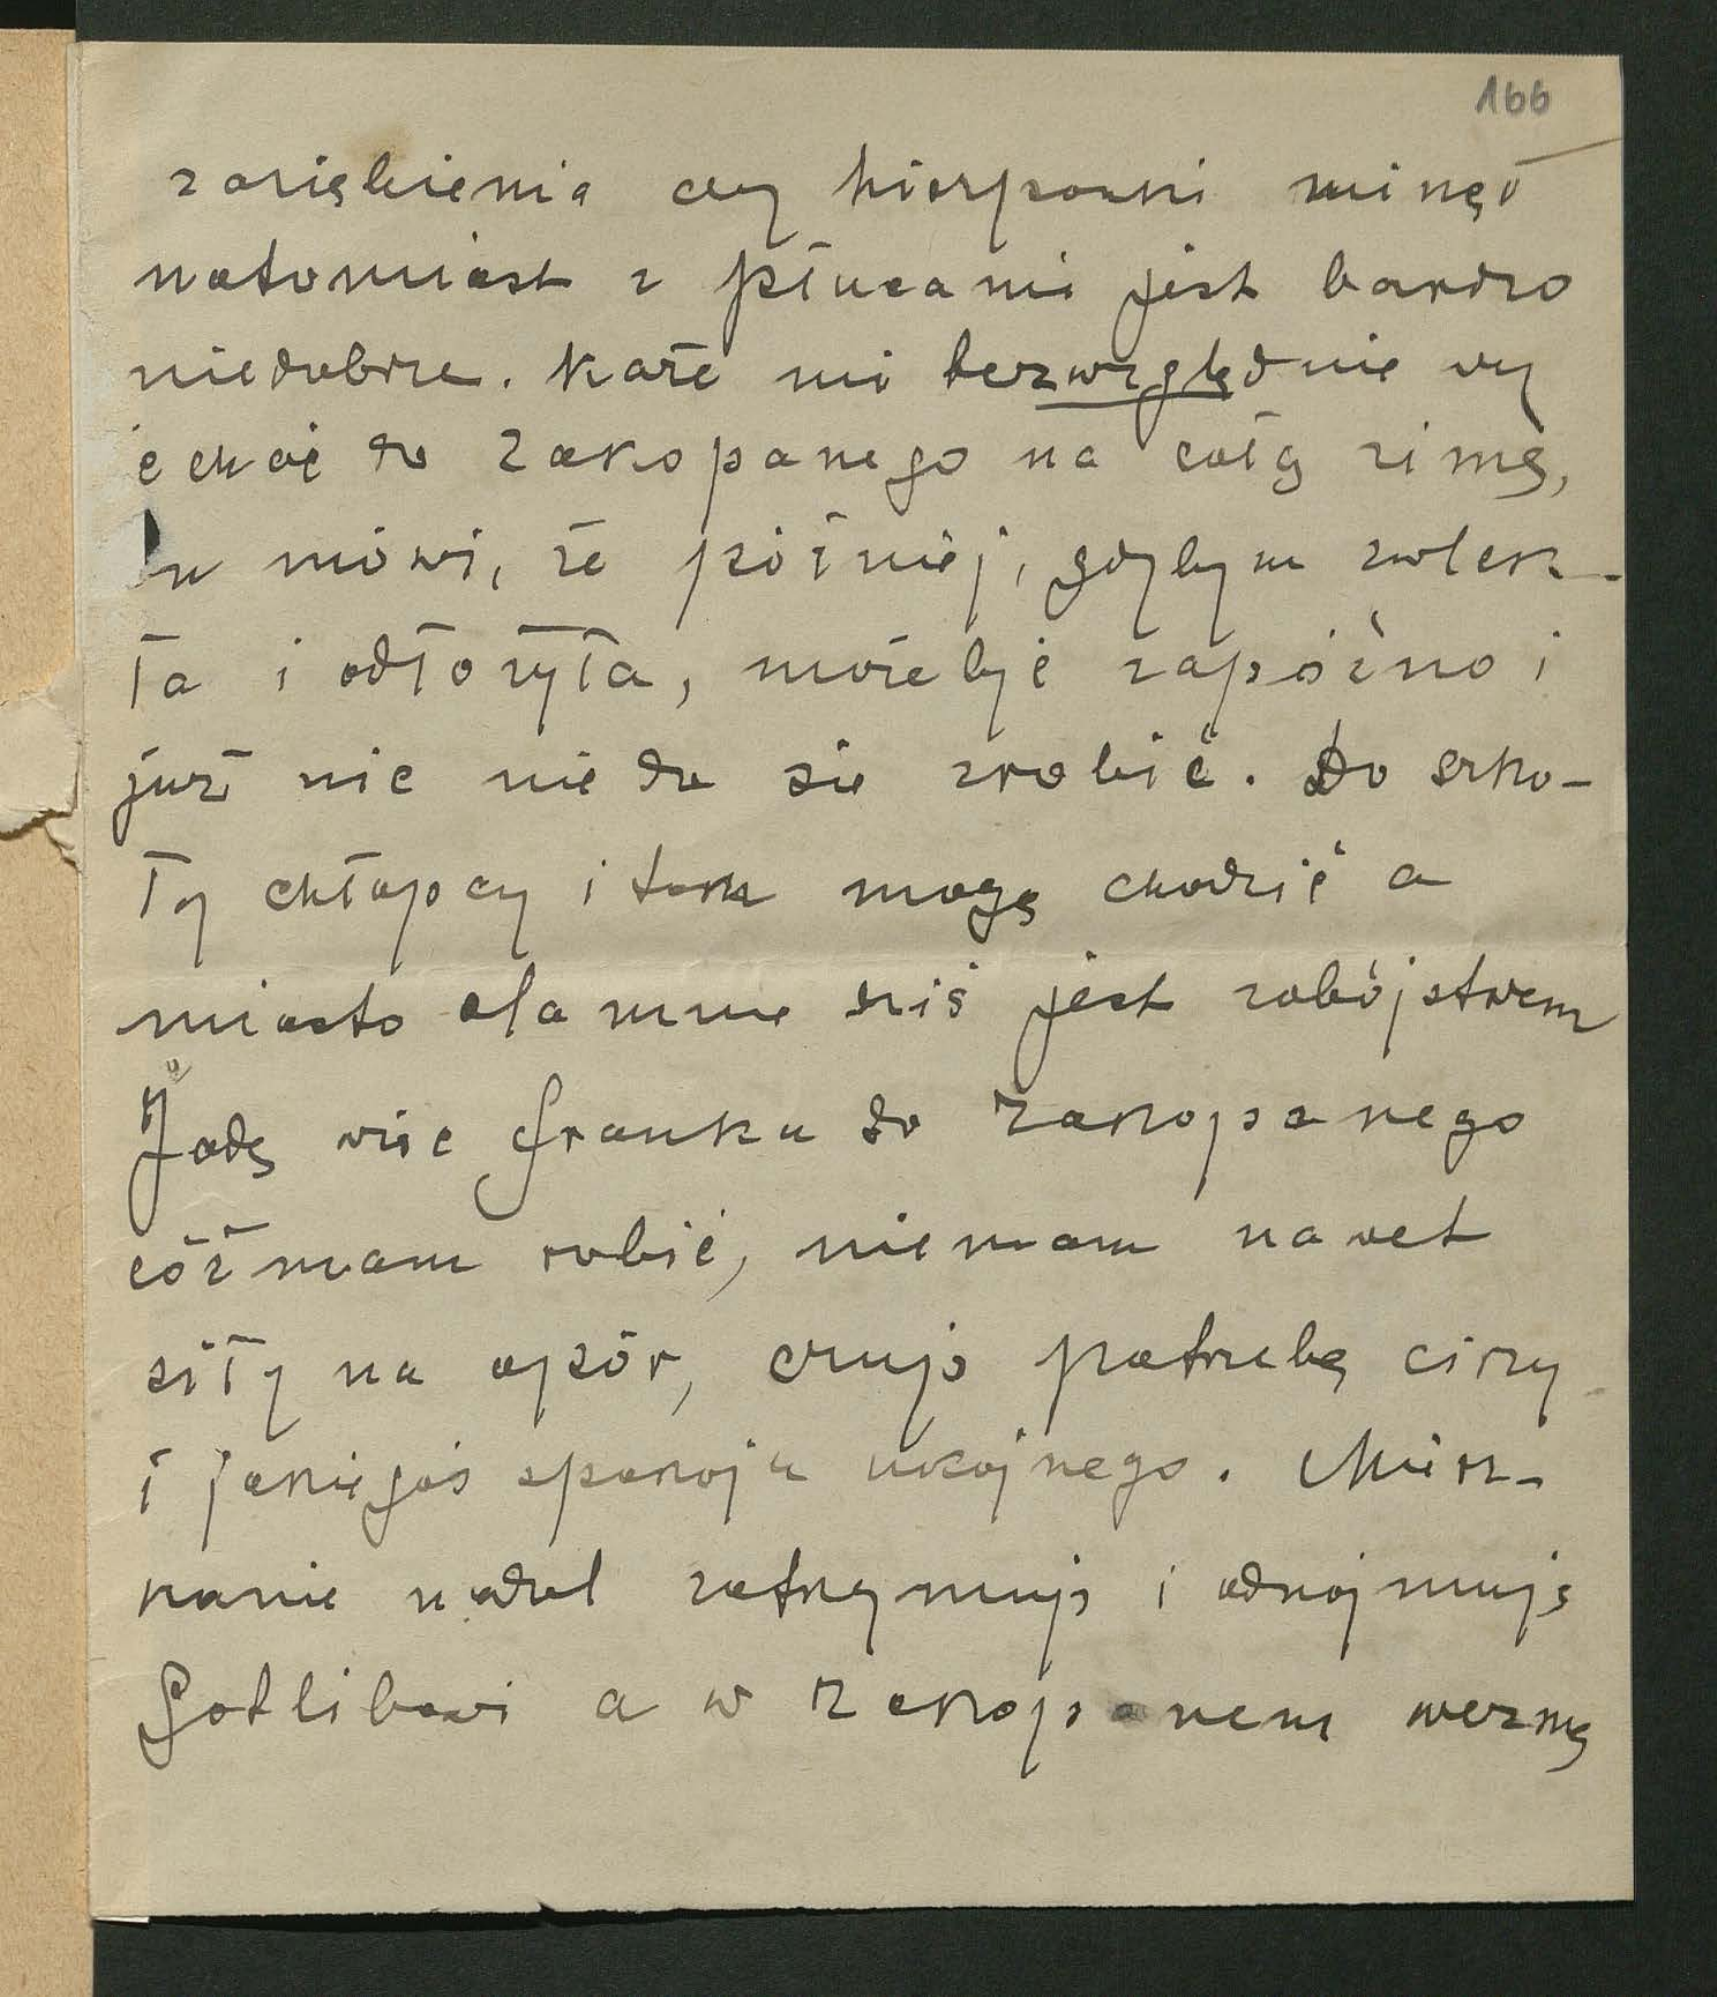 166
zaziębienia czy hiszpanki minął
natomiast z płucami jest bardzo
niedobrze. Każe mi bezwzględnie wy
jechać do Zakopanego na całą zimę,
bu mówi, że później, gdybym zwlek-
ła i odłożyła, może być zapóźno i
już nic nie da się zrobić. Do szko-
ły chłopcy i tak mogą chodzić a
miasto dla mnie dziś jest zabójstwem
Jadę więc Franku do Zakopanego
cóż mam robić, niemam nawet
siły na opór, czuję potrzebę ciszy
i jakiegoś spokoju ukojnego. Miesz-
kanie nadal zatrzymuję i odnajmuję
Gotlibowi a w Zakopanem wezmę